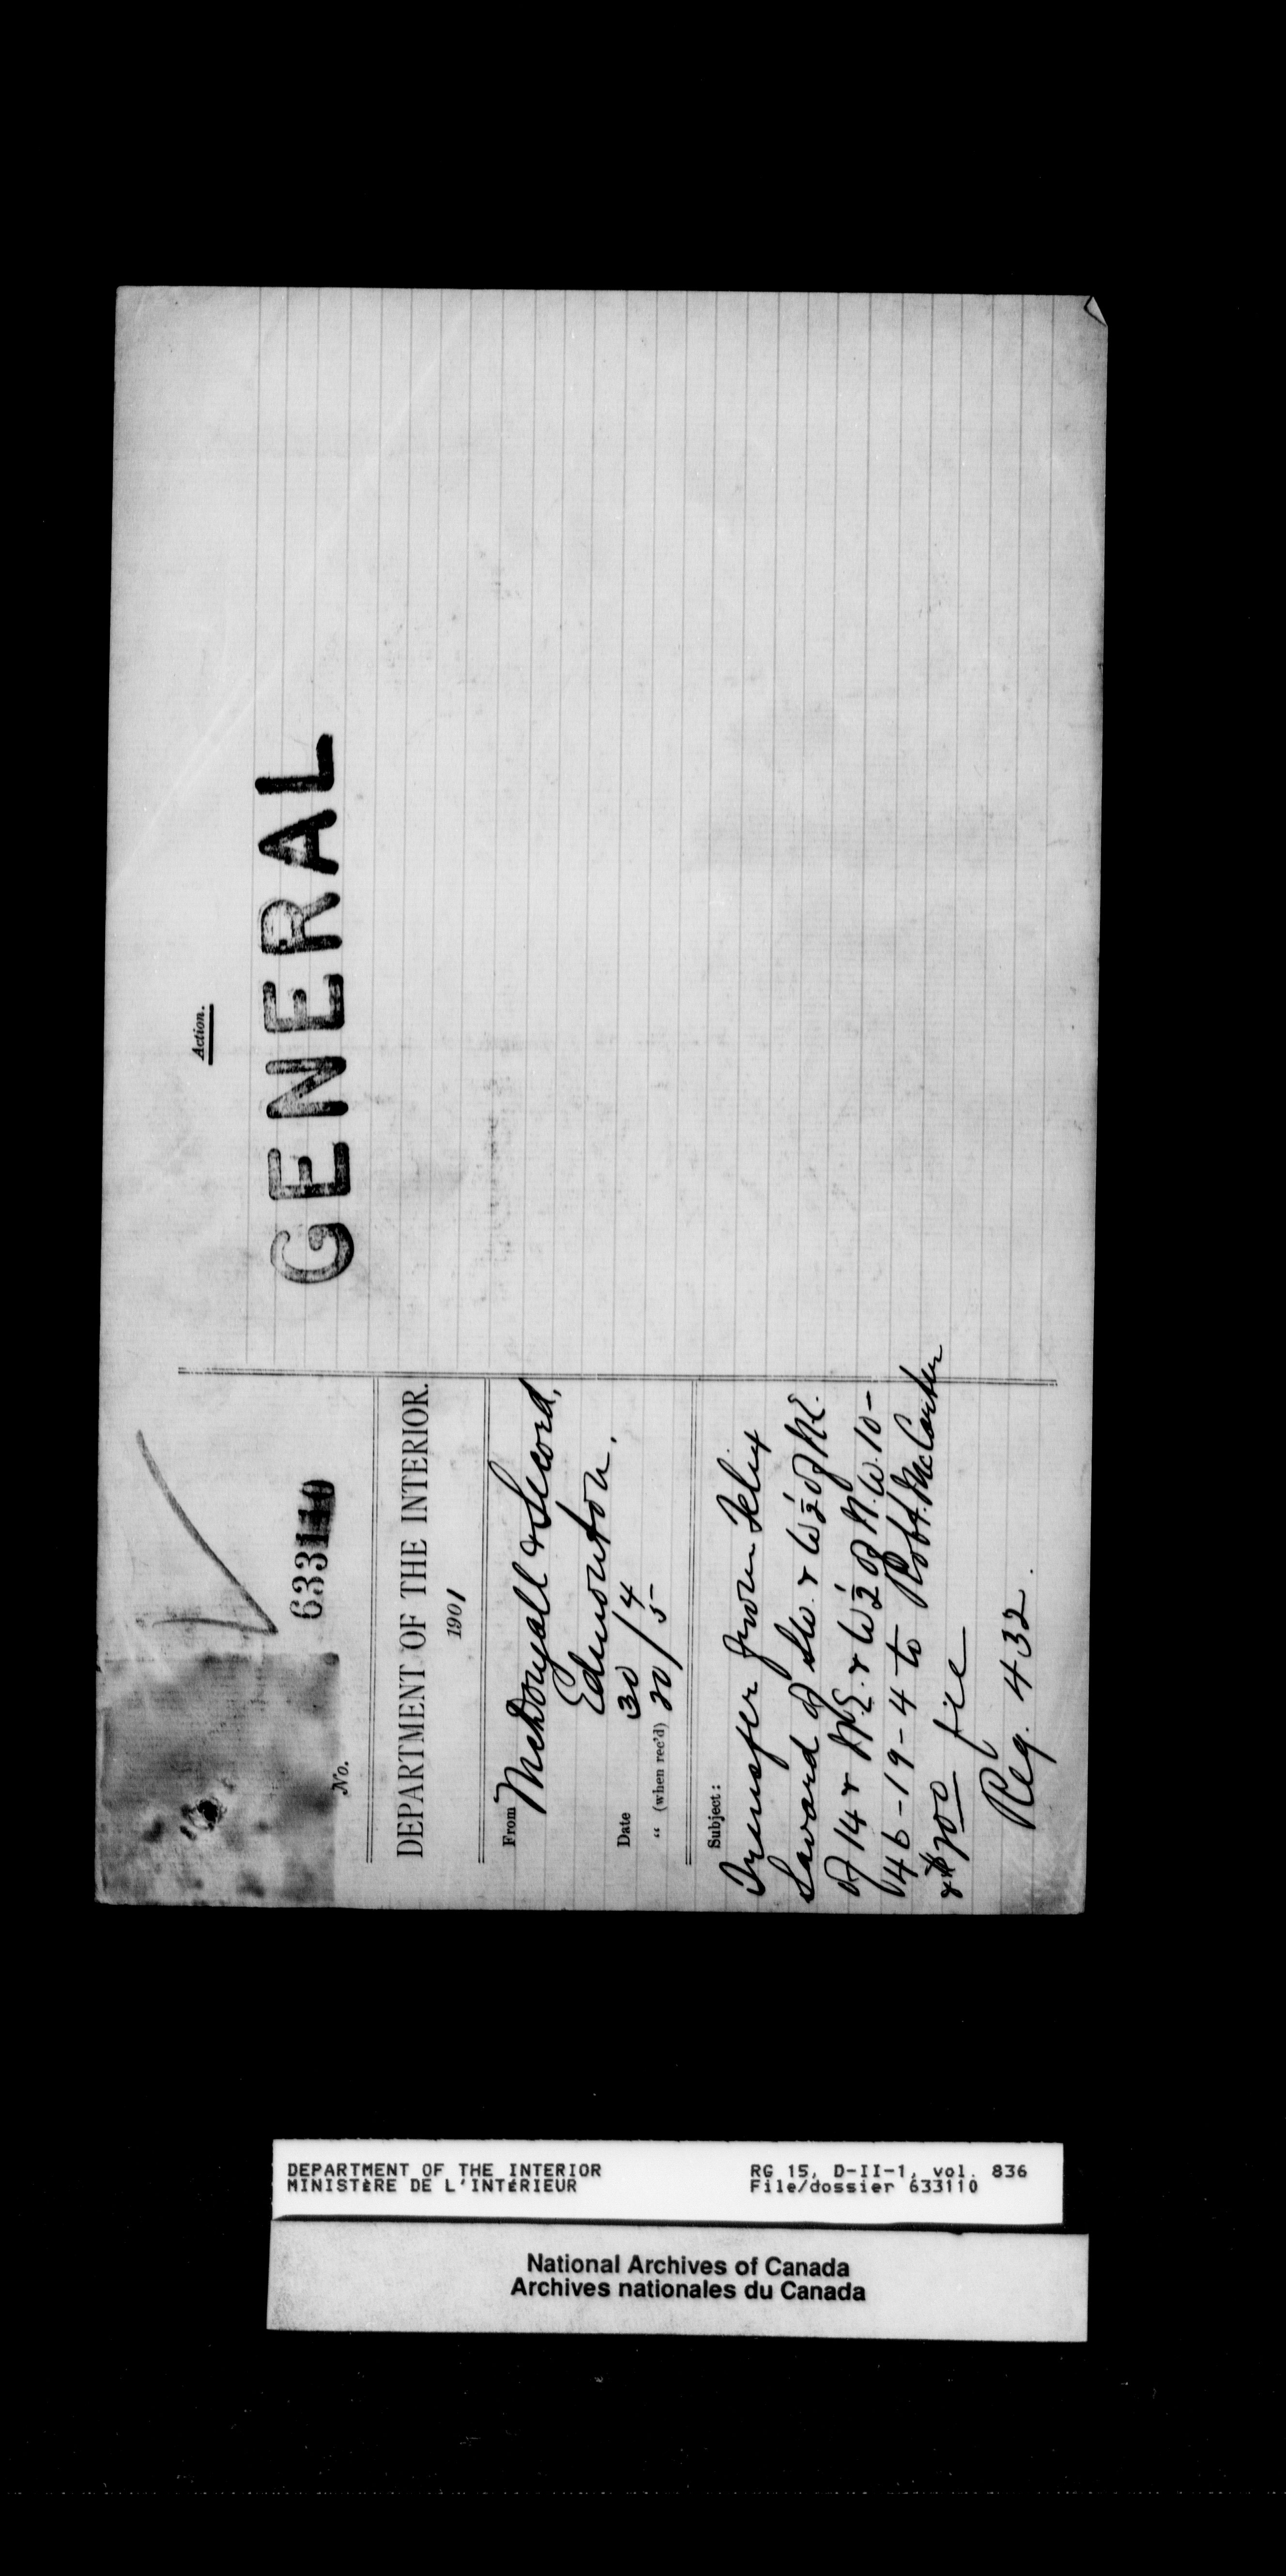 633110
No.
DEPARTMENT OF THE INTERIOR.
1901
From McDougall & Secord,
Edmonton.
Date 30/4
" (when rec'd) 20/5
Subject:
Transfer from Felix
Savard of SW. & W½ of NE.
of 14 & N.E. & W½ of N.W. 10-
46-19-4 to Robt. McCarter
& $2 00 fee
Reg. 432.
Action.
GENERAL
DEPARTMENT OF THE INTERIOR
MINISTÈRE DE L'INTÉRIEUR
RG 15, D-II-1, vol. 836
File/dossier 633110
National Archives of Canada
Archives nationales du Canada